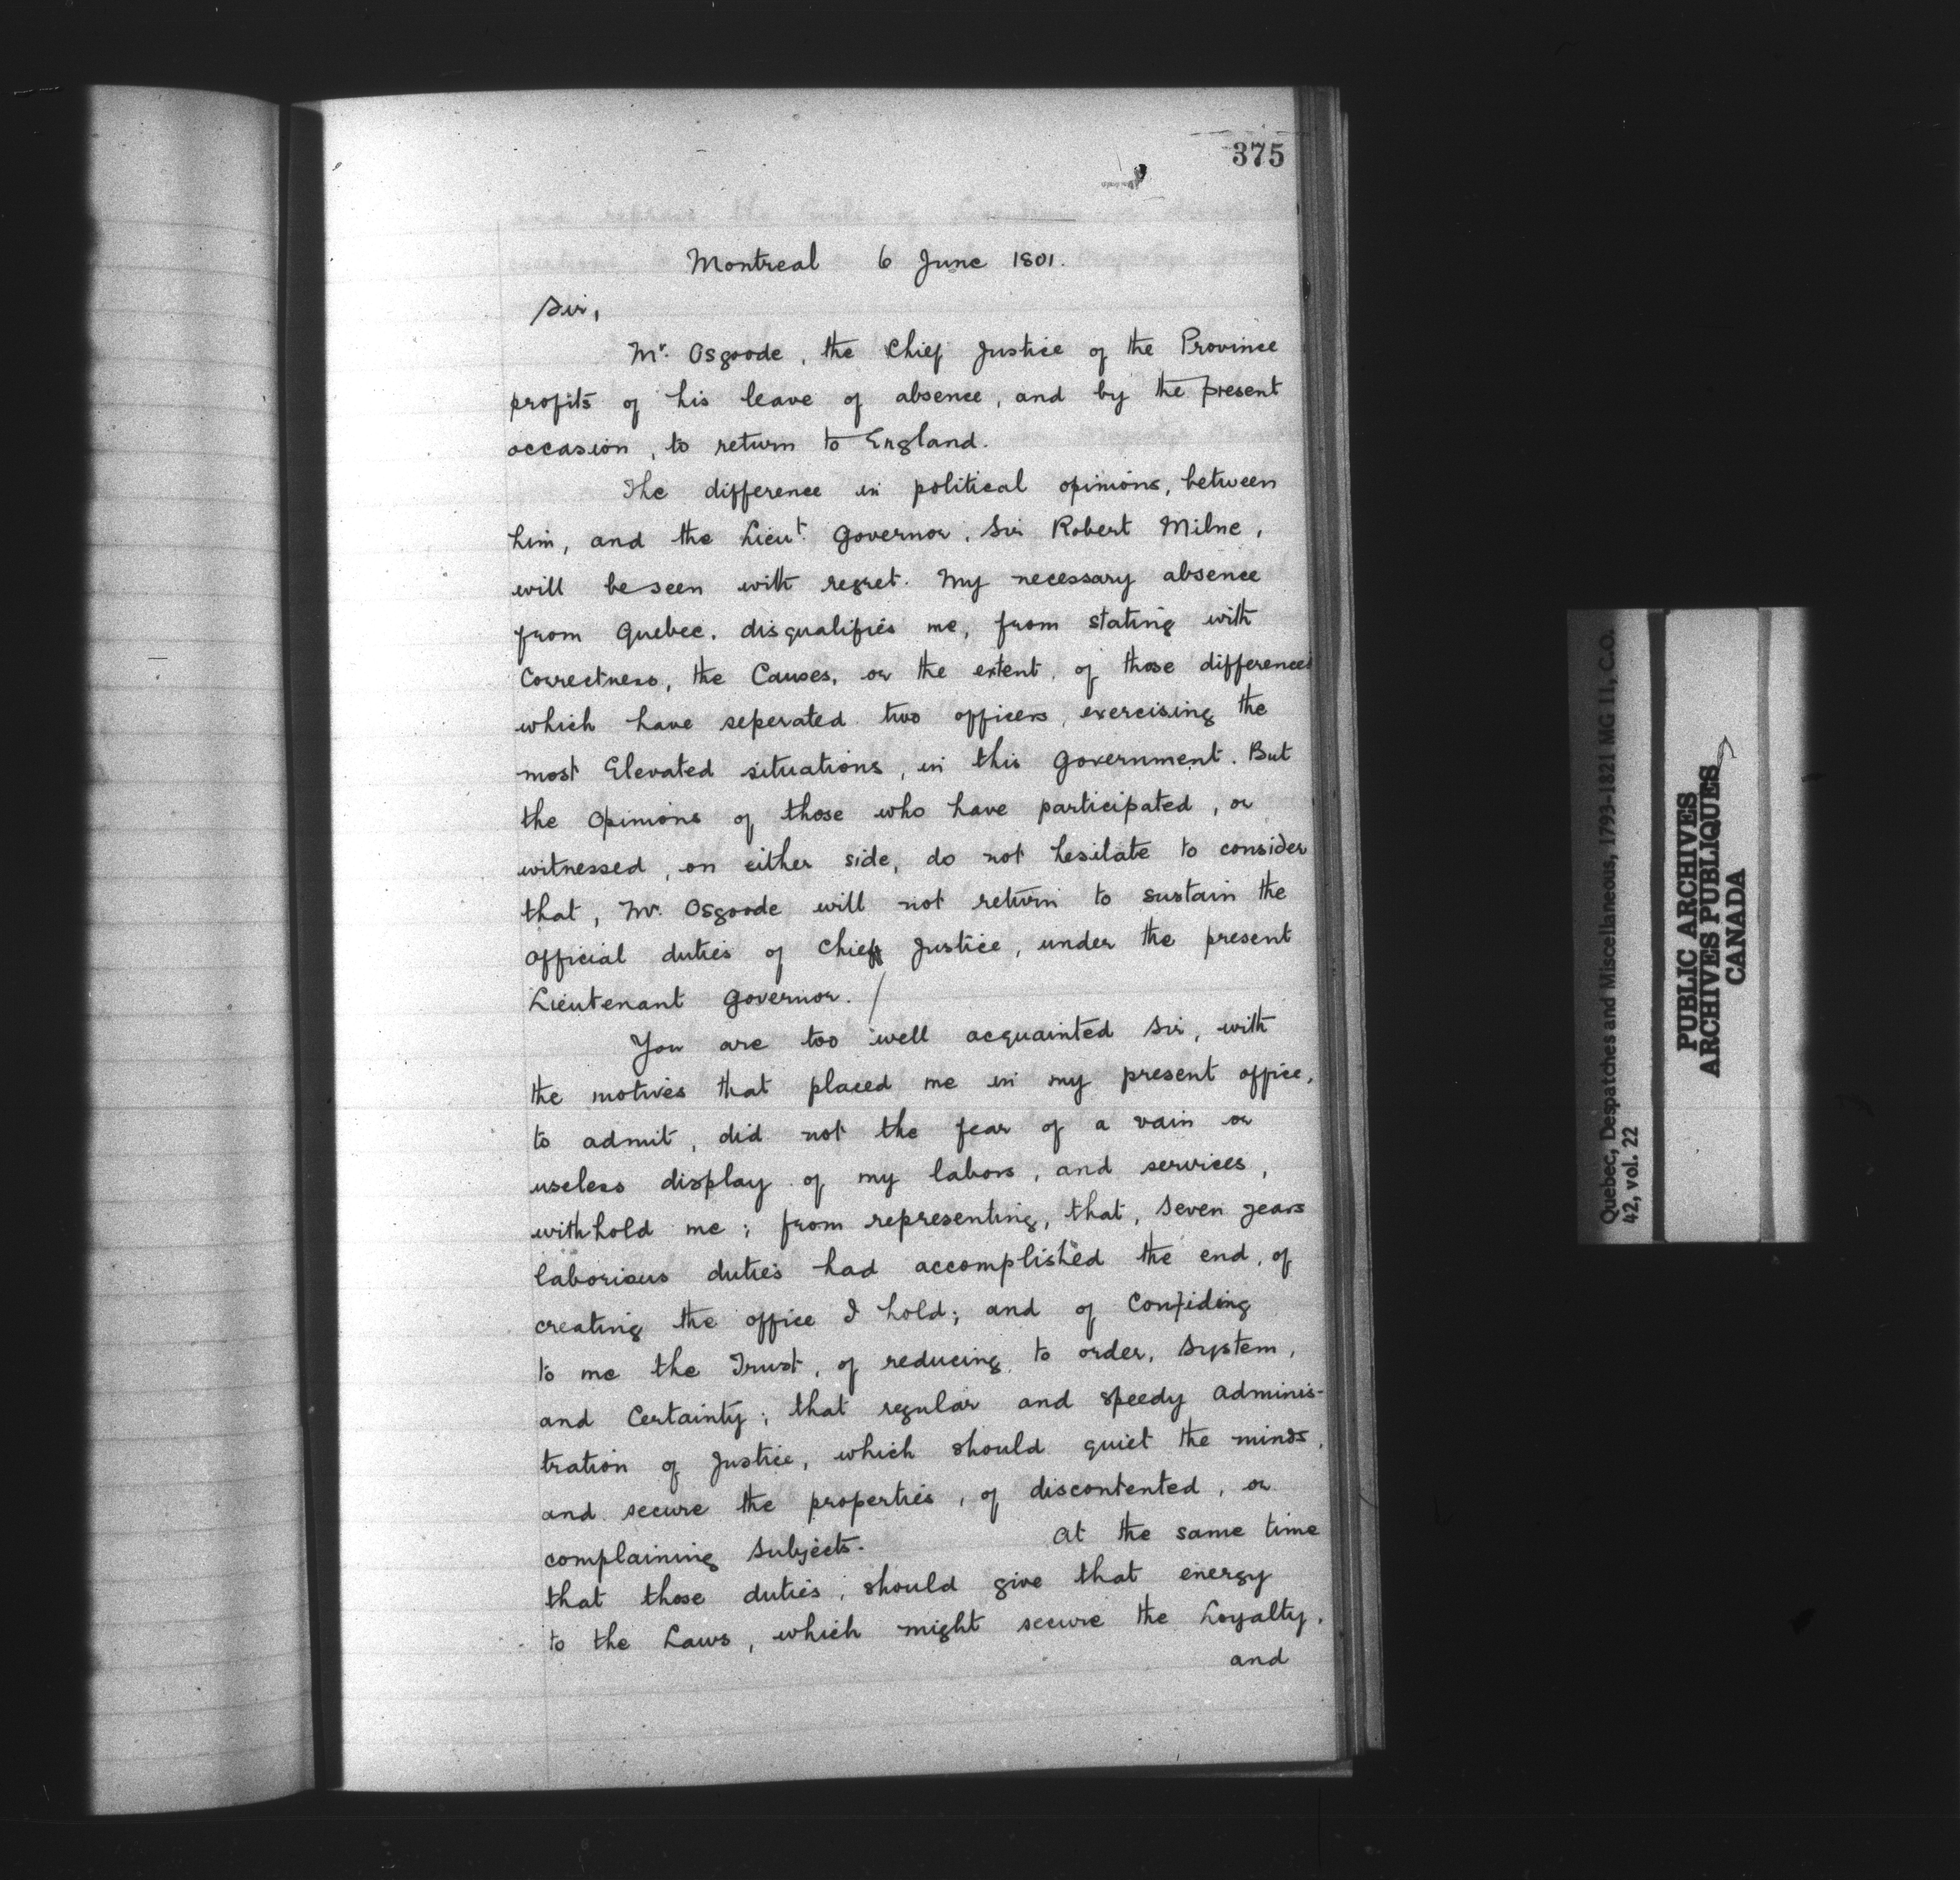 375
Montreal 6 June 1801.
Sir,
Mr. Osgoode, the Chief Justice of the Province
profits of his leave of absence, and by the present
occasion, to return to England.
The difference in political opinions, between
him, and the Lieut. Governor, Sir Robert Milne,
will be seen with regret. My necessary absence
from Quebec, disqualifies me, from stating with
Correctness, the Causes, or the extent, of those differences
which have seperated two officers, exercising the
most Elevated situations, in this Government. But
the Opinions of those who have participated, or
witnessed, on either side, do not hesitate to consider
that, Mr. Osgoode will not return to sustain the
Official duties of Chief Justice, under the present
Lieutenant Governor. /
You are too well acquainted Sir, with
the motives that placed me in my present office,
to admit, did not the fear of a vain or
useless display of my labors, and services,
withhold me; from representing, that, Seven years
laborious duties had accomplished the end, of
creating the office I hold; and of Confiding
to me the Trust, of reducing to order, System,
and Certainty; that regular and speedy adminis-
tration of Justice, which should quiet the minds,
and secure the properties, of discontented, or
complaining Subjects. At the same time
that those duties, should give that energy
to the Laws, which might secure the Loyalty,
and
Quebec, Despatches and Miscellaneous, 1793-1821 MG 11, C.O.
42, vol. 22
PUBLIC ARCHIVES
ARCHIVES PUBLIQUES
CANADA